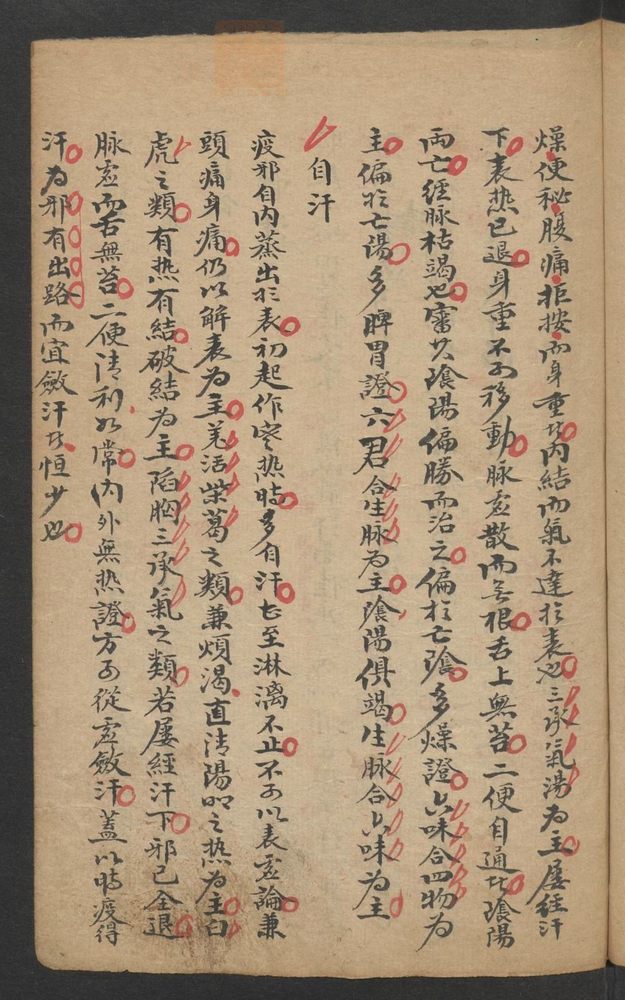 燥便秘腹痛拒按而身重此内結而氣不達於表也三承氣湯為主屡経汗
下表热已退身重不可移動脉虚散而无根舌上無苔二便自通此陰陽
両亡経脉枯竭也審其陰陽偏勝而治之偏於亡陰多燥證六味合四物為
主偏於亡陽多脾胃證六君合生脉為主陰陽俱竭生脉合六味為主
自汗
疫邪自内蒸出於表初起作寒热時多自汗甚至淋漓不止不可以表虚論兼
頭痛身痛仍以解表為主羌活柴葛之類兼煩渴直清陽明之热為主白
虎之類有热有結破結為主陷胸三承氣之類若屡經汗下邪已全退
脉虚而舌無苔二便清利如常内外無热證方可從虚斂汗蓋以時疫得
汗為邪有出路而宜斂汗此恒少也